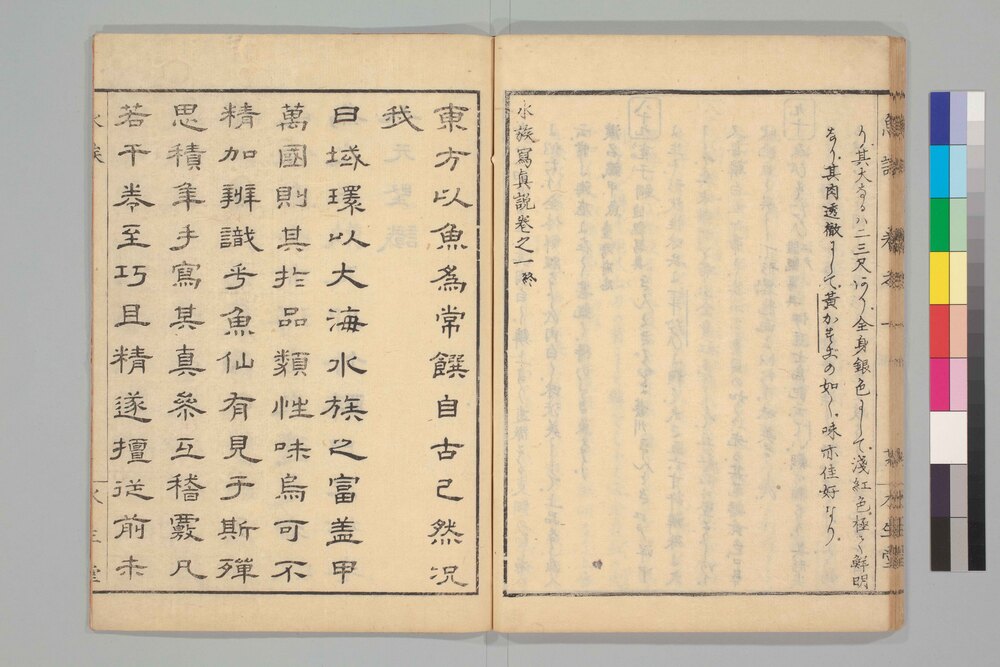 り其大なるハ二三尺あり全身銀色にして淺紅色極て鮮明
なり其肉透徹にして黃かすぢの如く味亦佳好なり
水族寫真説卷之一終
東方以魚為常饌自古已然況
我
日域環以大海水族之富盖甲
萬國則其於品類性味烏可不
精加辨識乎魚仙有見于斯殫
思積年手寫其真參互稽覈凡
若干卷至巧且精遂擅從前未